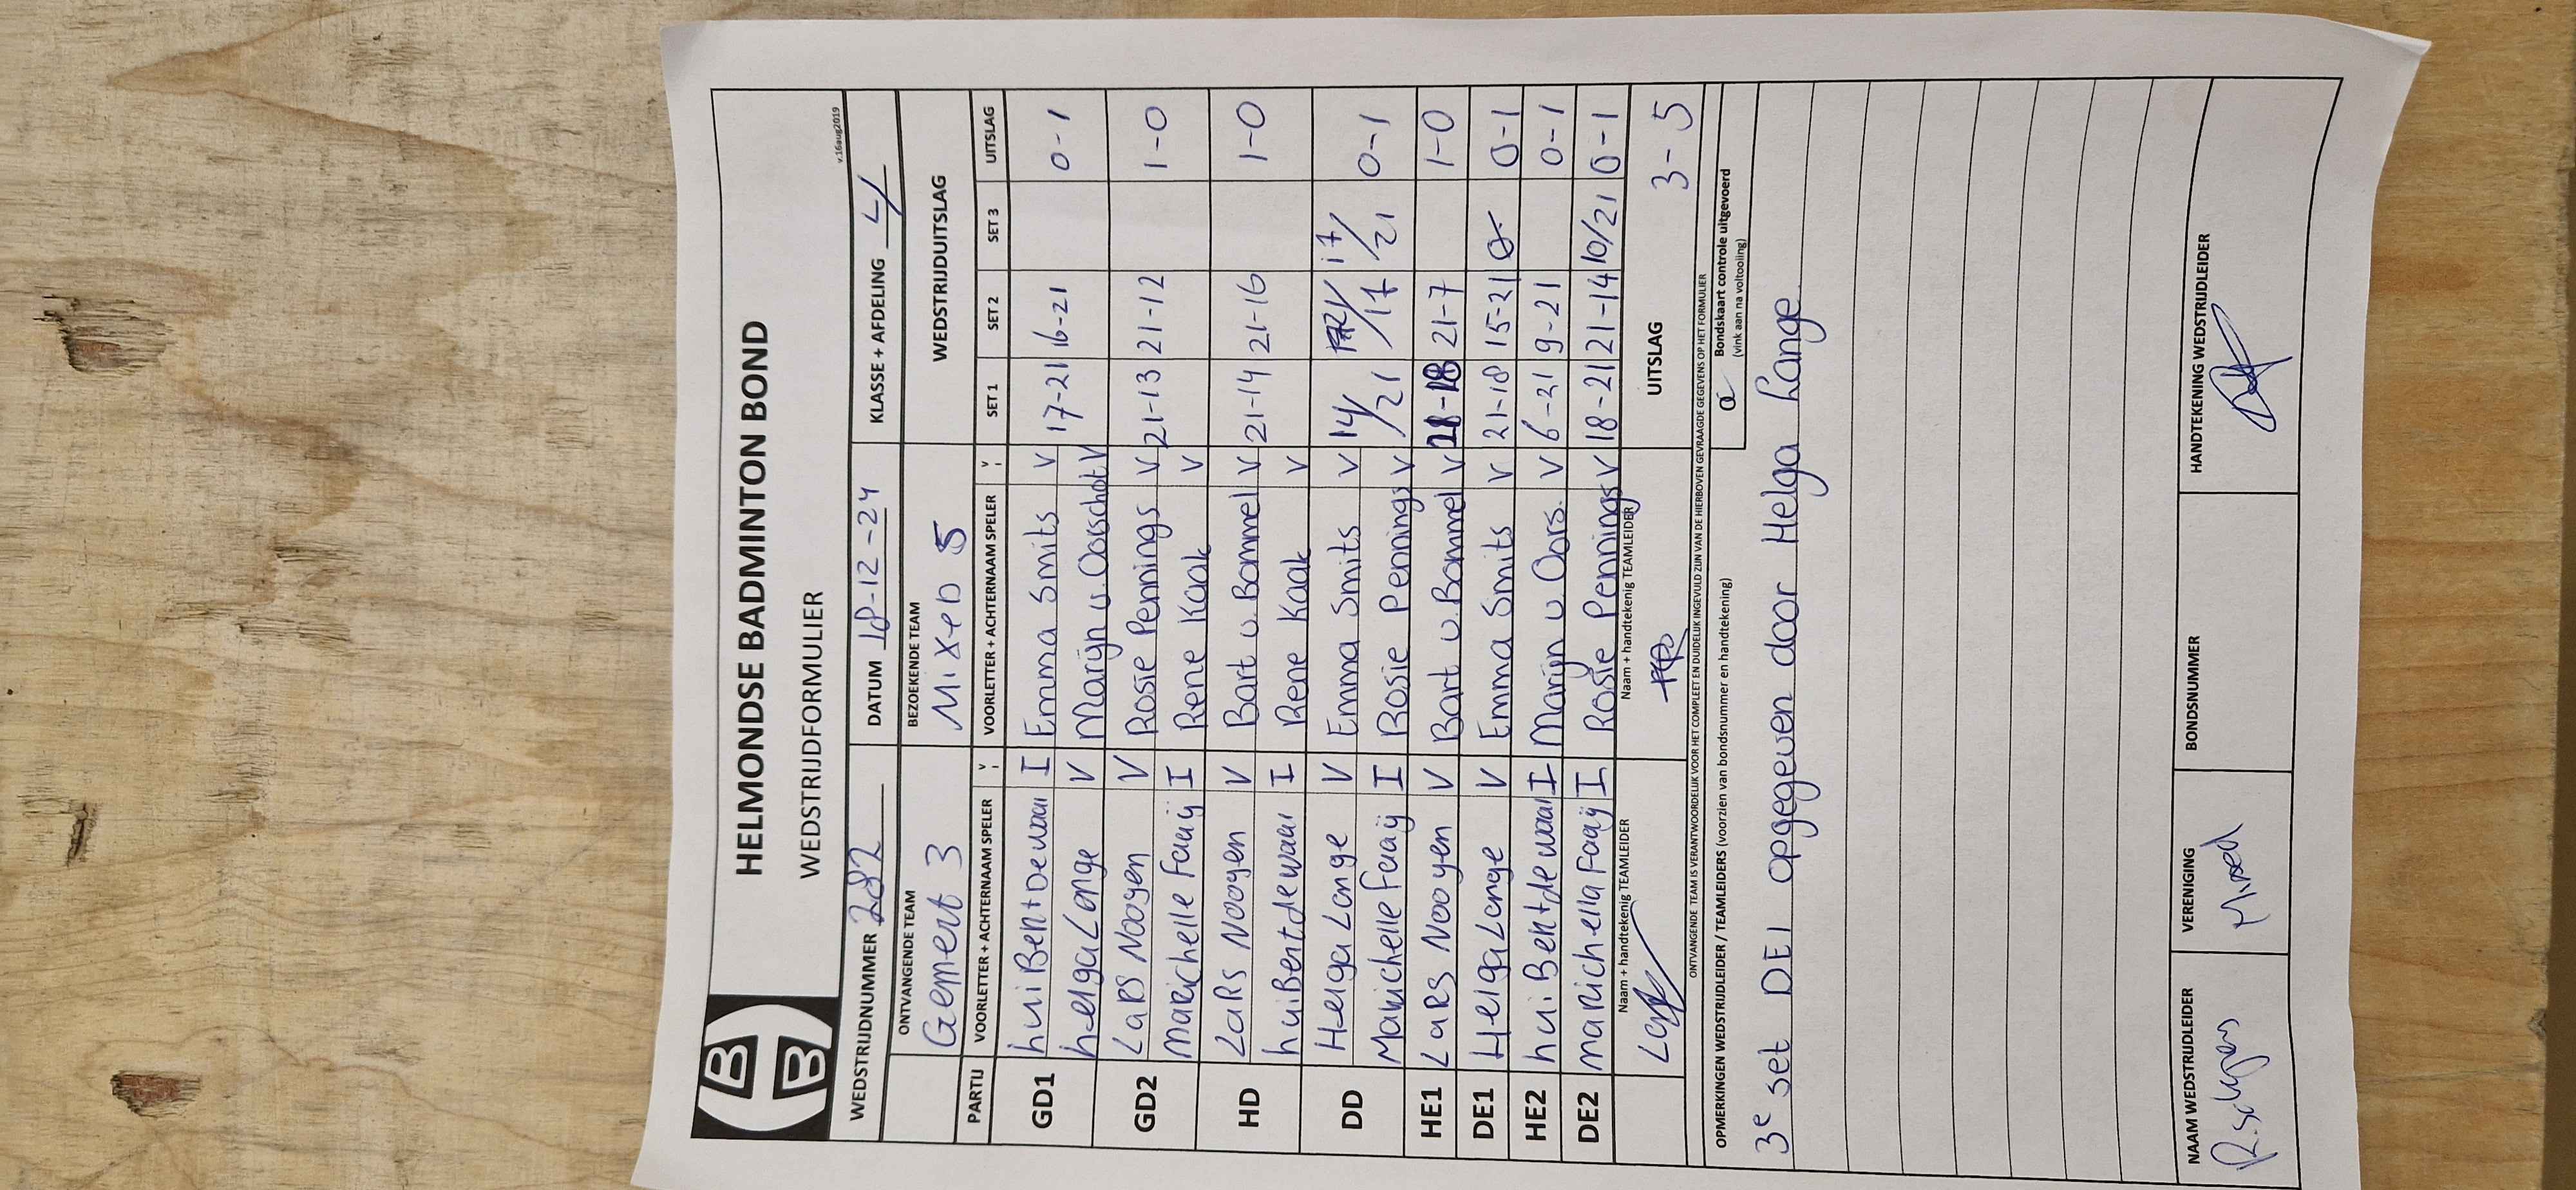 HELMONDSE BADMINTON BOND
WEDSTRIJDFORMULIER
v.16aug2019
WEDSTRIJDNUMMER 282 DATUM 18-12-24 KLASSE + AFDELING 4
ONTVANGENDE TEAM BEZOEKENDE TEAM WEDSTRIJDUITSLAG
Gemert 3 Mixed 5
PARTIJ VOORLETTER + ACHTERNAAM SPELER V I VOORLETTER + ACHTERNAAM SPELER V I SET 1 SET 2 SET 3 UITSLAG
GD1 huiBentdewaal I Emma Smits V 17-21 16-21 0-1
helga Lange V Marijn v. Oorschot V
GD2 Lars Nooyen V Rosie Pennings V 21-13 21-12 1-0
marichelle Faaij I Rene Kaak V
HD Lars Nooyen V Bart v. Bommel V 21-14 21-16 1-0
huiBentdewaal I Rene Kaak V
DD Helga Lange V Emma Smits V 14/21 21/17 17/21 0-1
Marichelle Faaij I Rosie Pennings V
HE1 Lars Nooyen V Bart v. Bommel V 21-18 21-7 1-0
DE1 Helga Lange V Emma Smits V 21-18 15-21 0-1
HE2 huiBentdewaal I Marijn v. Oors. V 6-21 9-21 0-1
DE2 marichella Faaij I Rosie Pennings V 18-21 21-14 10/21 0-1
Naam + handtekenig TEAMLEIDER Naam + handtekenig TEAMLEIDER UITSLAG 3-5
ONTVANGENDE TEAM IS VERANTWOORDELIJK VOOR HET COMPLEET EN DUIDELIJK INGEVULD ZIJN VAN DE HIERBOVEN GEVRAAGDE GEGEVENS OP HET FORMULIER
OPMERKINGEN WEDSTRIJDLEIDER / TEAMLEIDERS (voorzien van bondsnummer en handtekening)
Bondskaart controle uitgevoerd
(vink aan na voltooiing)
3e set DE1 opgegeven door Helga Lange
NAAM WEDSTRIJDLEIDER VERENIGING BONDSNUMMER HANDTEKENING WEDSTRIJDLEIDER
Mixed